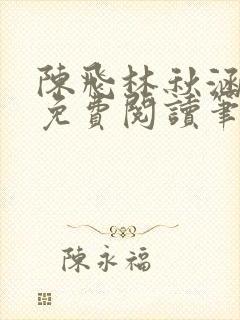 陳飛林秋涵
免費閱讀筆
陳永福